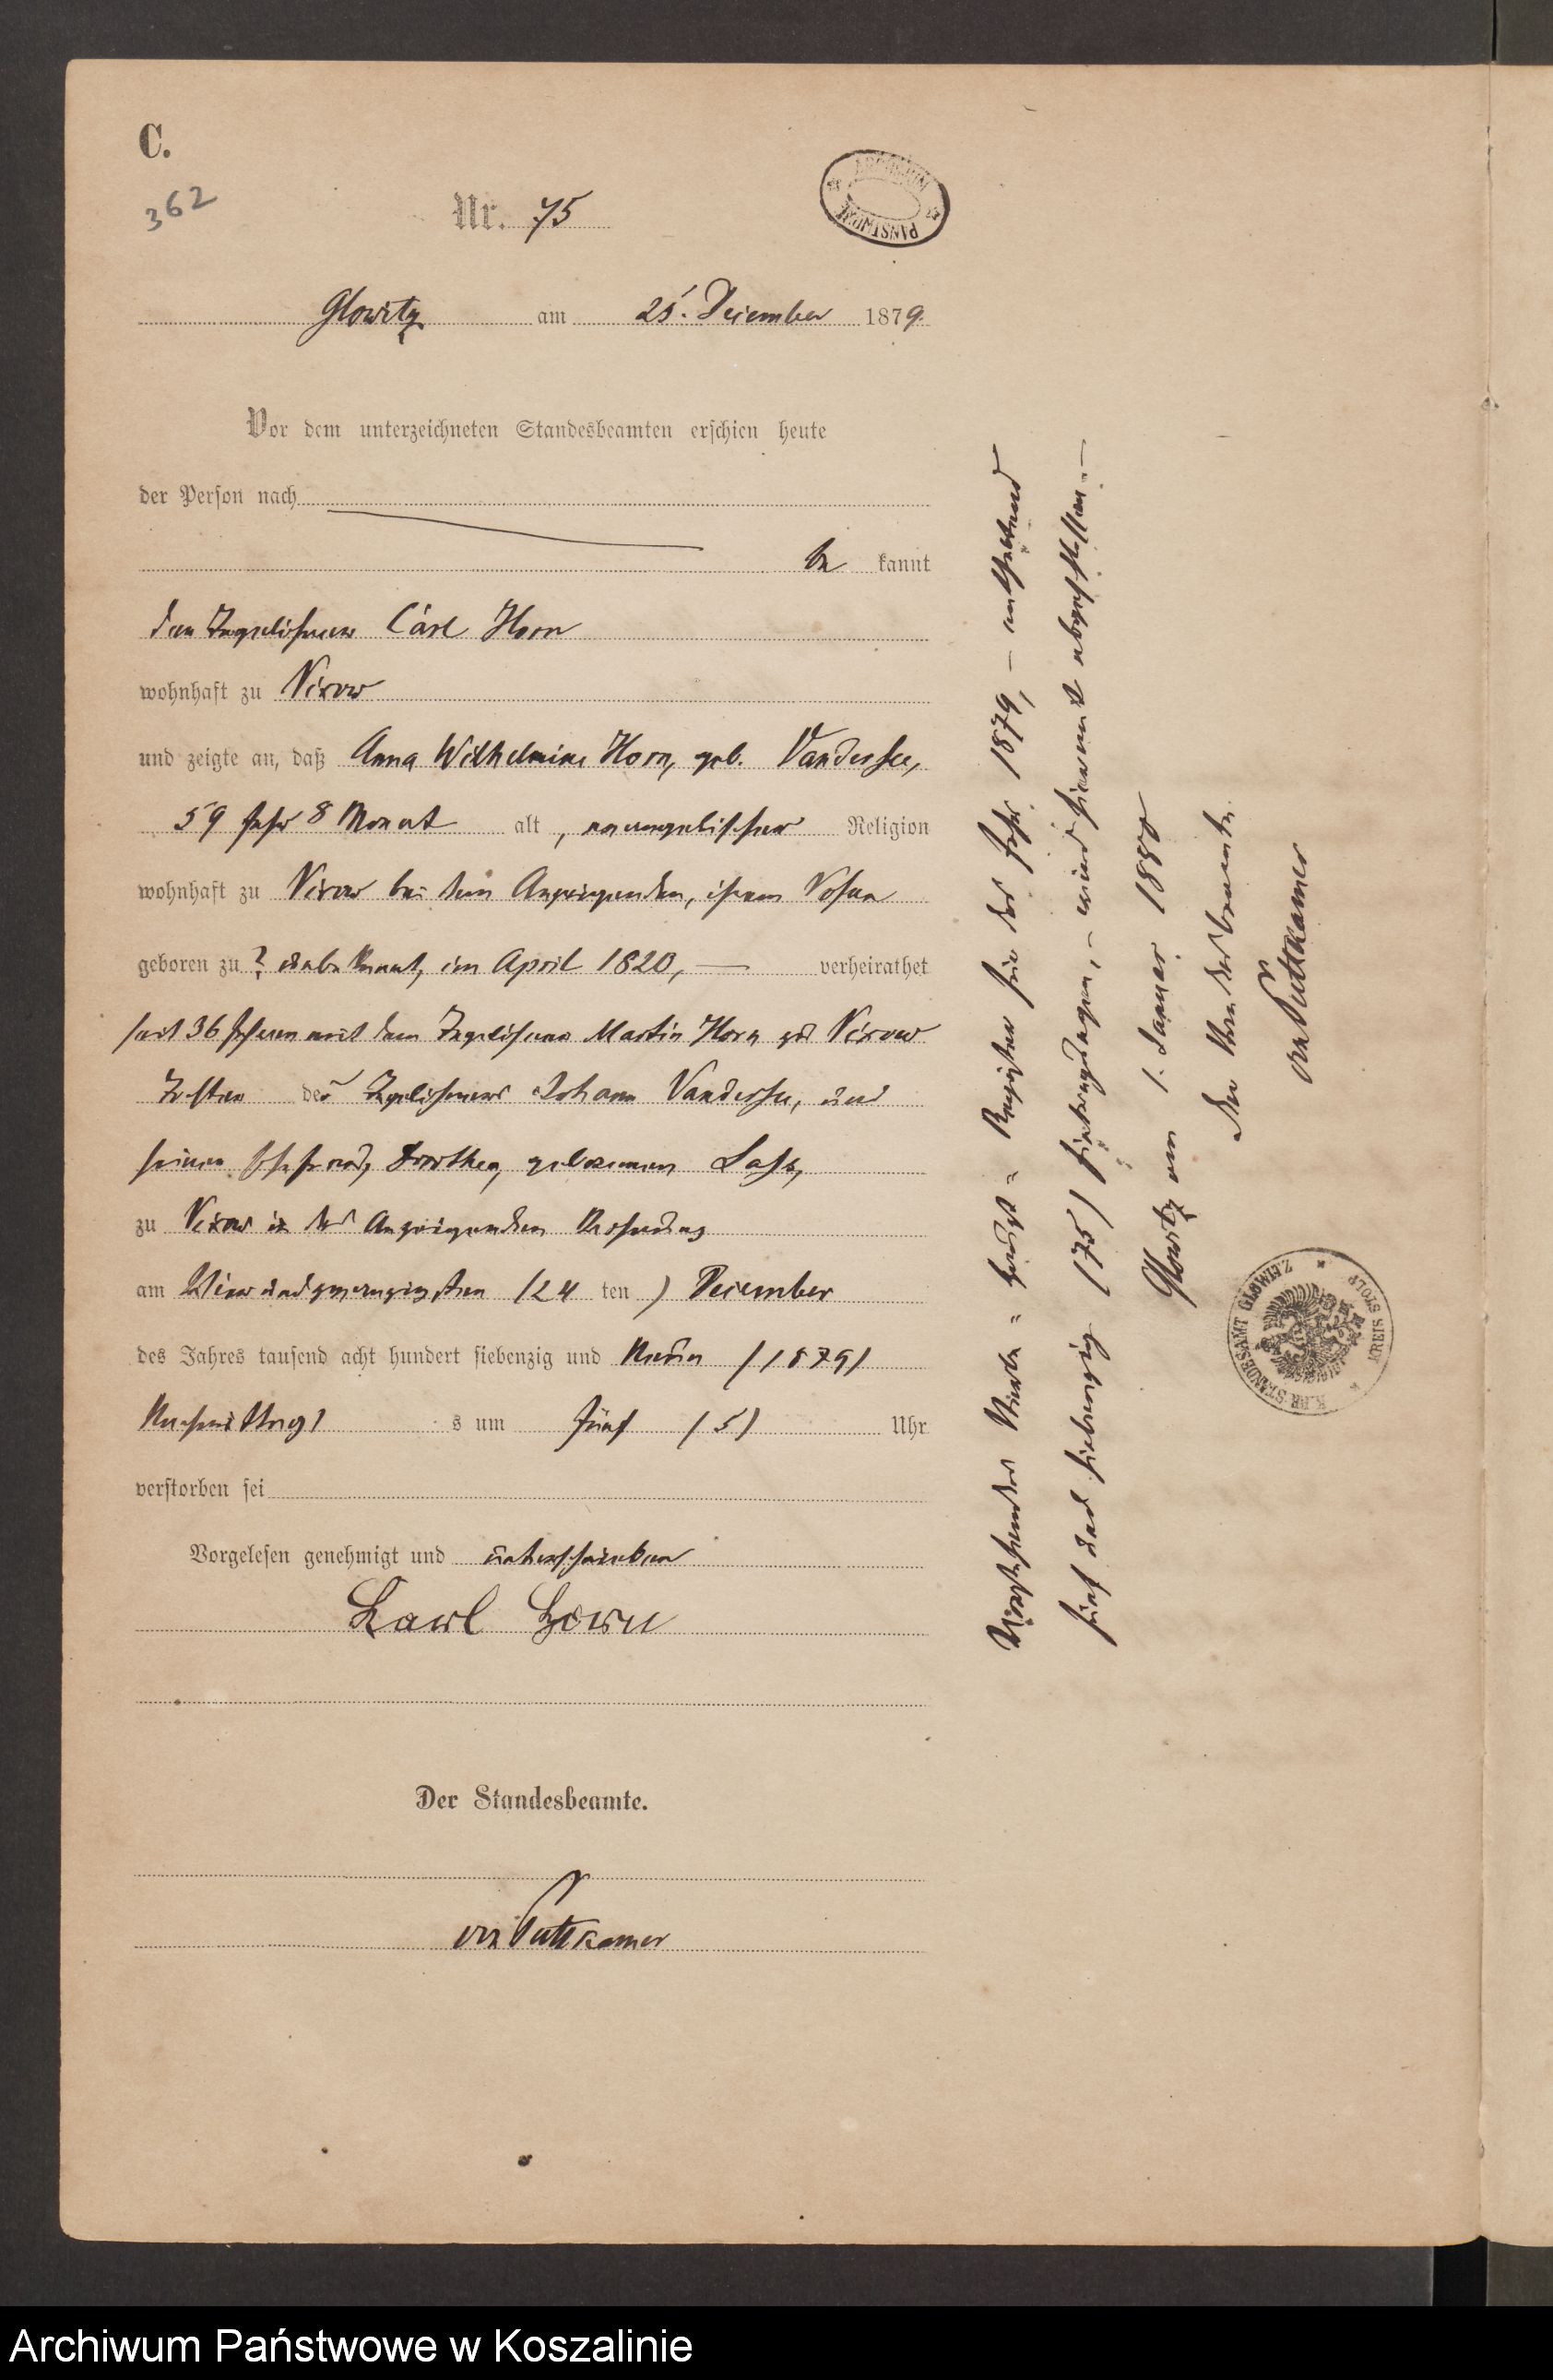 C.
362
Nr. 75
ARCHIWUM PAŃSTWOWE
Glowitz am 25. December 1879.
Vor dem unterzeichneten Standesbeamten erschien heute
der Person nach
be kannt
den Tagelöhner Carl Horn
wohnhaft zu Vixow
und zeigte an, daß Anna Wilhelmine Horn, geb. Vandersee,
59 Jahr 8 Monat alt, evangelischer Religion
wohnhaft zu Vixow bei dem Anzeigenden, ihrem Sohne
geboren zu ? unbekannt, im April 1820, — verheirathet
seit 36 Jahren mit dem Tagelöhner Martin Horn zu Vixow
Tochter des Tagelöhners Johann Vandersee, und
seiner Ehefrau, Dorothea, geborenen Lass,
zu Vixow in des Anzeigenden Behausung
am Vierundzwanzigsten (24 ten) December
des Jahres tausend acht hundert siebenzig und Neun (1879)
Nachmittags um fünf (5) Uhr
verstorben sei
Vorgelesen genehmigt und unterschrieben
Karl Horn
Der Standesbeamte.
von Puttkamer
Vorstehendes Sterbe-Haupt-Register für das Jahr 1879, – enthaltend
fünf und siebenzig (75) Eintragungen, – wird hiermit abgeschlossen. –
Glowitz am 1. Januar 1880
Der Standesbeamte
von Puttkamer
K. PR. STANDESAMT GLOWITZ * KREIS STOLP *
Archiwum Państwowe w Koszalinie